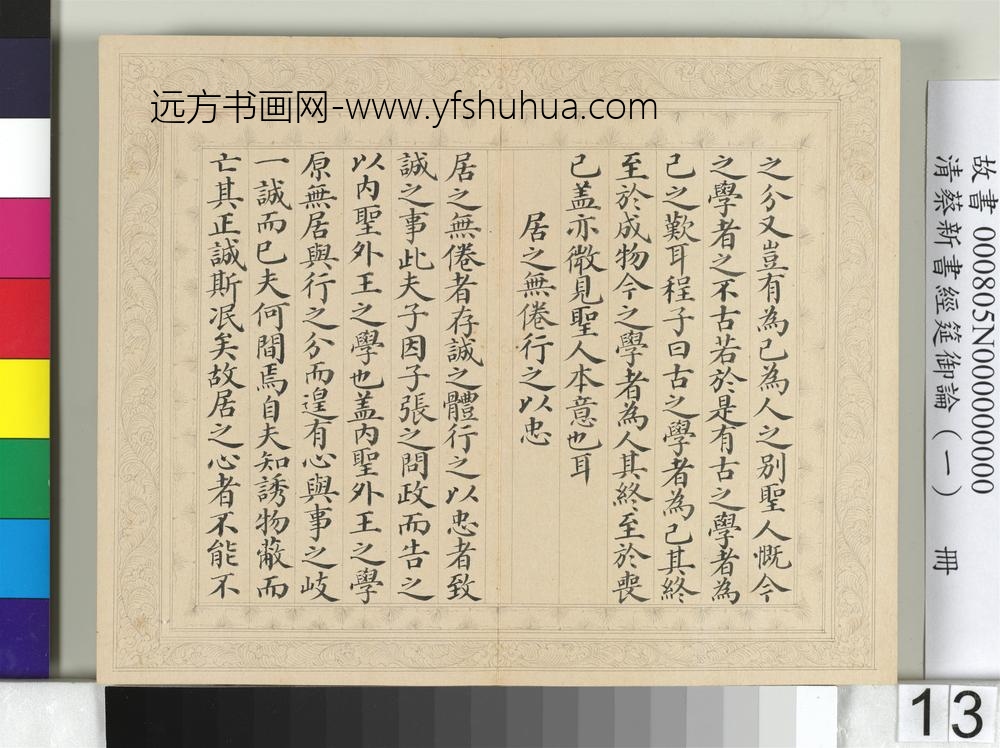 远方书画网-www.yfshuhua.com
之分又豈有為己為人之别聖人慨今
之學者之不古若於是有古之學者為
己之歎耳程子曰古之學者為己其終
至於成物今之學者為人其終至於喪
己盖亦微見聖人本意也耳
居之無倦行之以忠
居之無倦者存誠之體行之以忠者致
誠之事此夫子因子張之問政而告之
以内聖外王之學也盖内聖外王之學
原無居與行之分而遑有心與事之岐
一誠而已夫何間焉自夫知誘物蔽而
亡其正誠斯泯矣故居之心者不能不
故書 000805N000000000
清蔡新書經筵御論（一） 冊
13